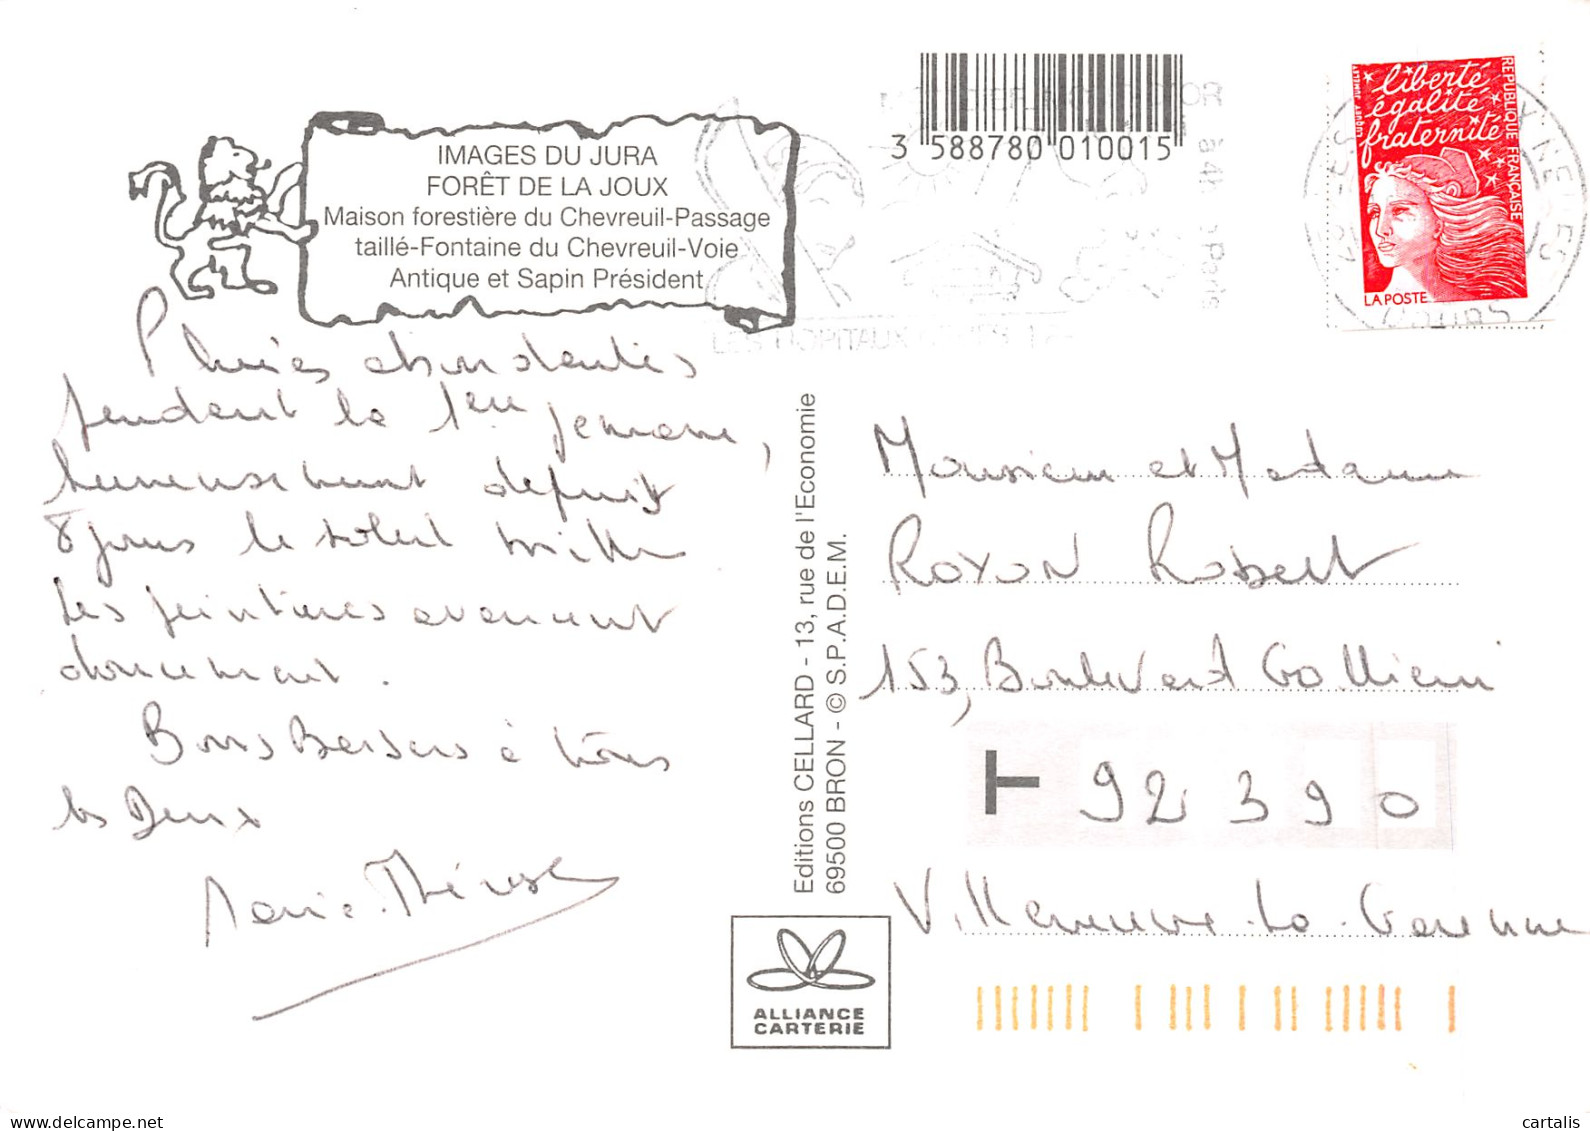 IMAGES DU JURA
FORÊT DE LA JOUX
Maison forestière du Chevreuil-Passage
taillé-Fontaine du Chevreuil-Voie
Antique et Sapin Président
3 588780 010015
liberté
égalité
fraternité
REPUBLIQUE FRANÇAISE
LA POSTE
LES HOPITAUX
Pluies abondantes
pendant la 1ère semaine,
heureusement depuis
8 jours le soleil brille
Les peintures avancent
doucement.
Bons Baisers à tous
les Deux
Marie-Thérèse
Editions CELLARD - 13, rue de l'Economie
69500 BRON - © S.P.A.D.E.M.
ALLIANCE
CARTERIE
Monsieur et Madame
ROYON Robert
153, Boulevard Gallieni
T 92 390
Villeneuve-La-Garenne
cartorum